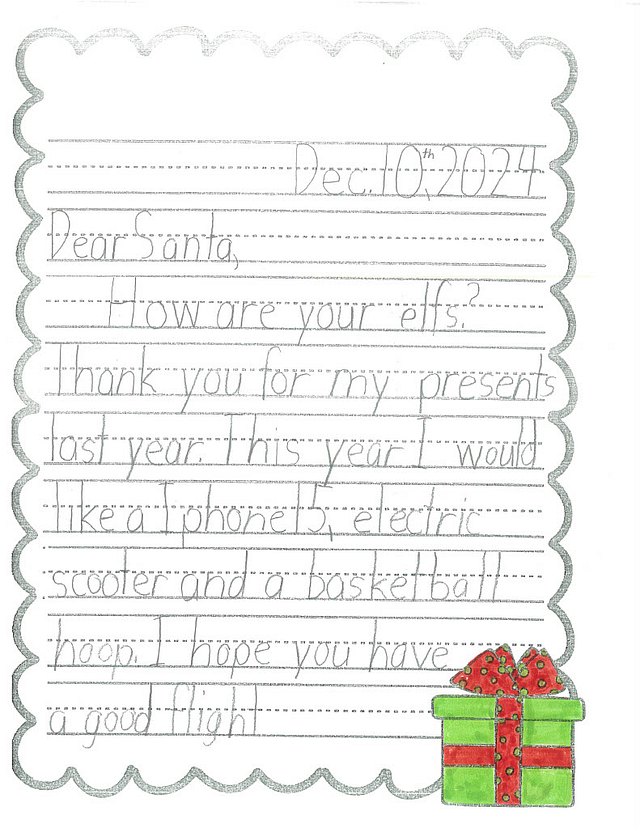 Dec. 10th, 2024
Dear Santa,
How are your elfs?
Thank you for my presents
last year. This year I would
like a Iphone 15, electric
scooter and a basketball
hoop. I hope you have
a good flight